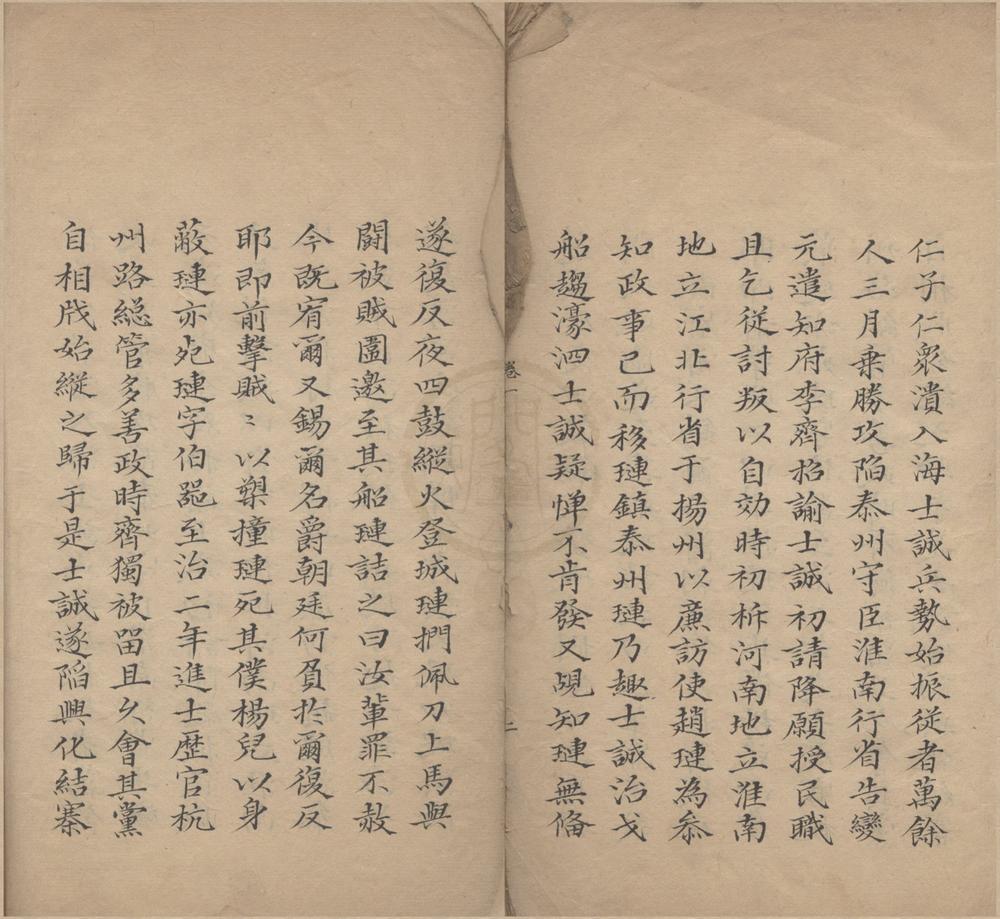 仁子仁衆潰入海士誠兵勢始振從者萬餘
人三月乗勝攻陷泰州守臣淮南行省告變
元遣知府李齊招諭士誠初請降願授民職
且乞從討叛以自効時初柝河南地立淮南
地立江北行省于揚州以廉訪使趙璉為叅
知政事已而移璉鎮泰州璉乃趣士誠治戈
船趨濠泗士誠疑憚不肯發又覘知璉無俻
卷一
二
遂復反夜四鼓縱火登城璉捫佩刀上馬與
鬪被賊圍邀至其船璉詰之曰汝輩罪不赦
今既宥爾又錫爾名爵朝廷何負扵爾復反
耶即前擊賊〻以槊撞璉死其僕楊兒以身
蔽璉亦死璉字伯噐至治二年進士歴官杭
州路總管多善政時齊獨被留且久會其黨
自相戕始縱之歸于是士誠遂陷興化結寨